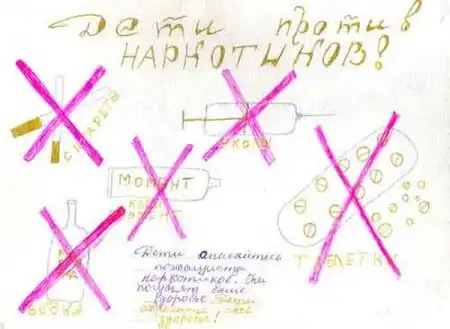 Дети против
НАРКОТИКОВ!
СИГАРЕТЫ
УКОЛЫ
МОМЕНТ
КЛЕЙ
МОМЕНТ
ТАБЛЕТКИ
ВОДКА
Дети опасайтесь
пожалуиста
наркотиков. Они
погубят ваше
здоровье Дети